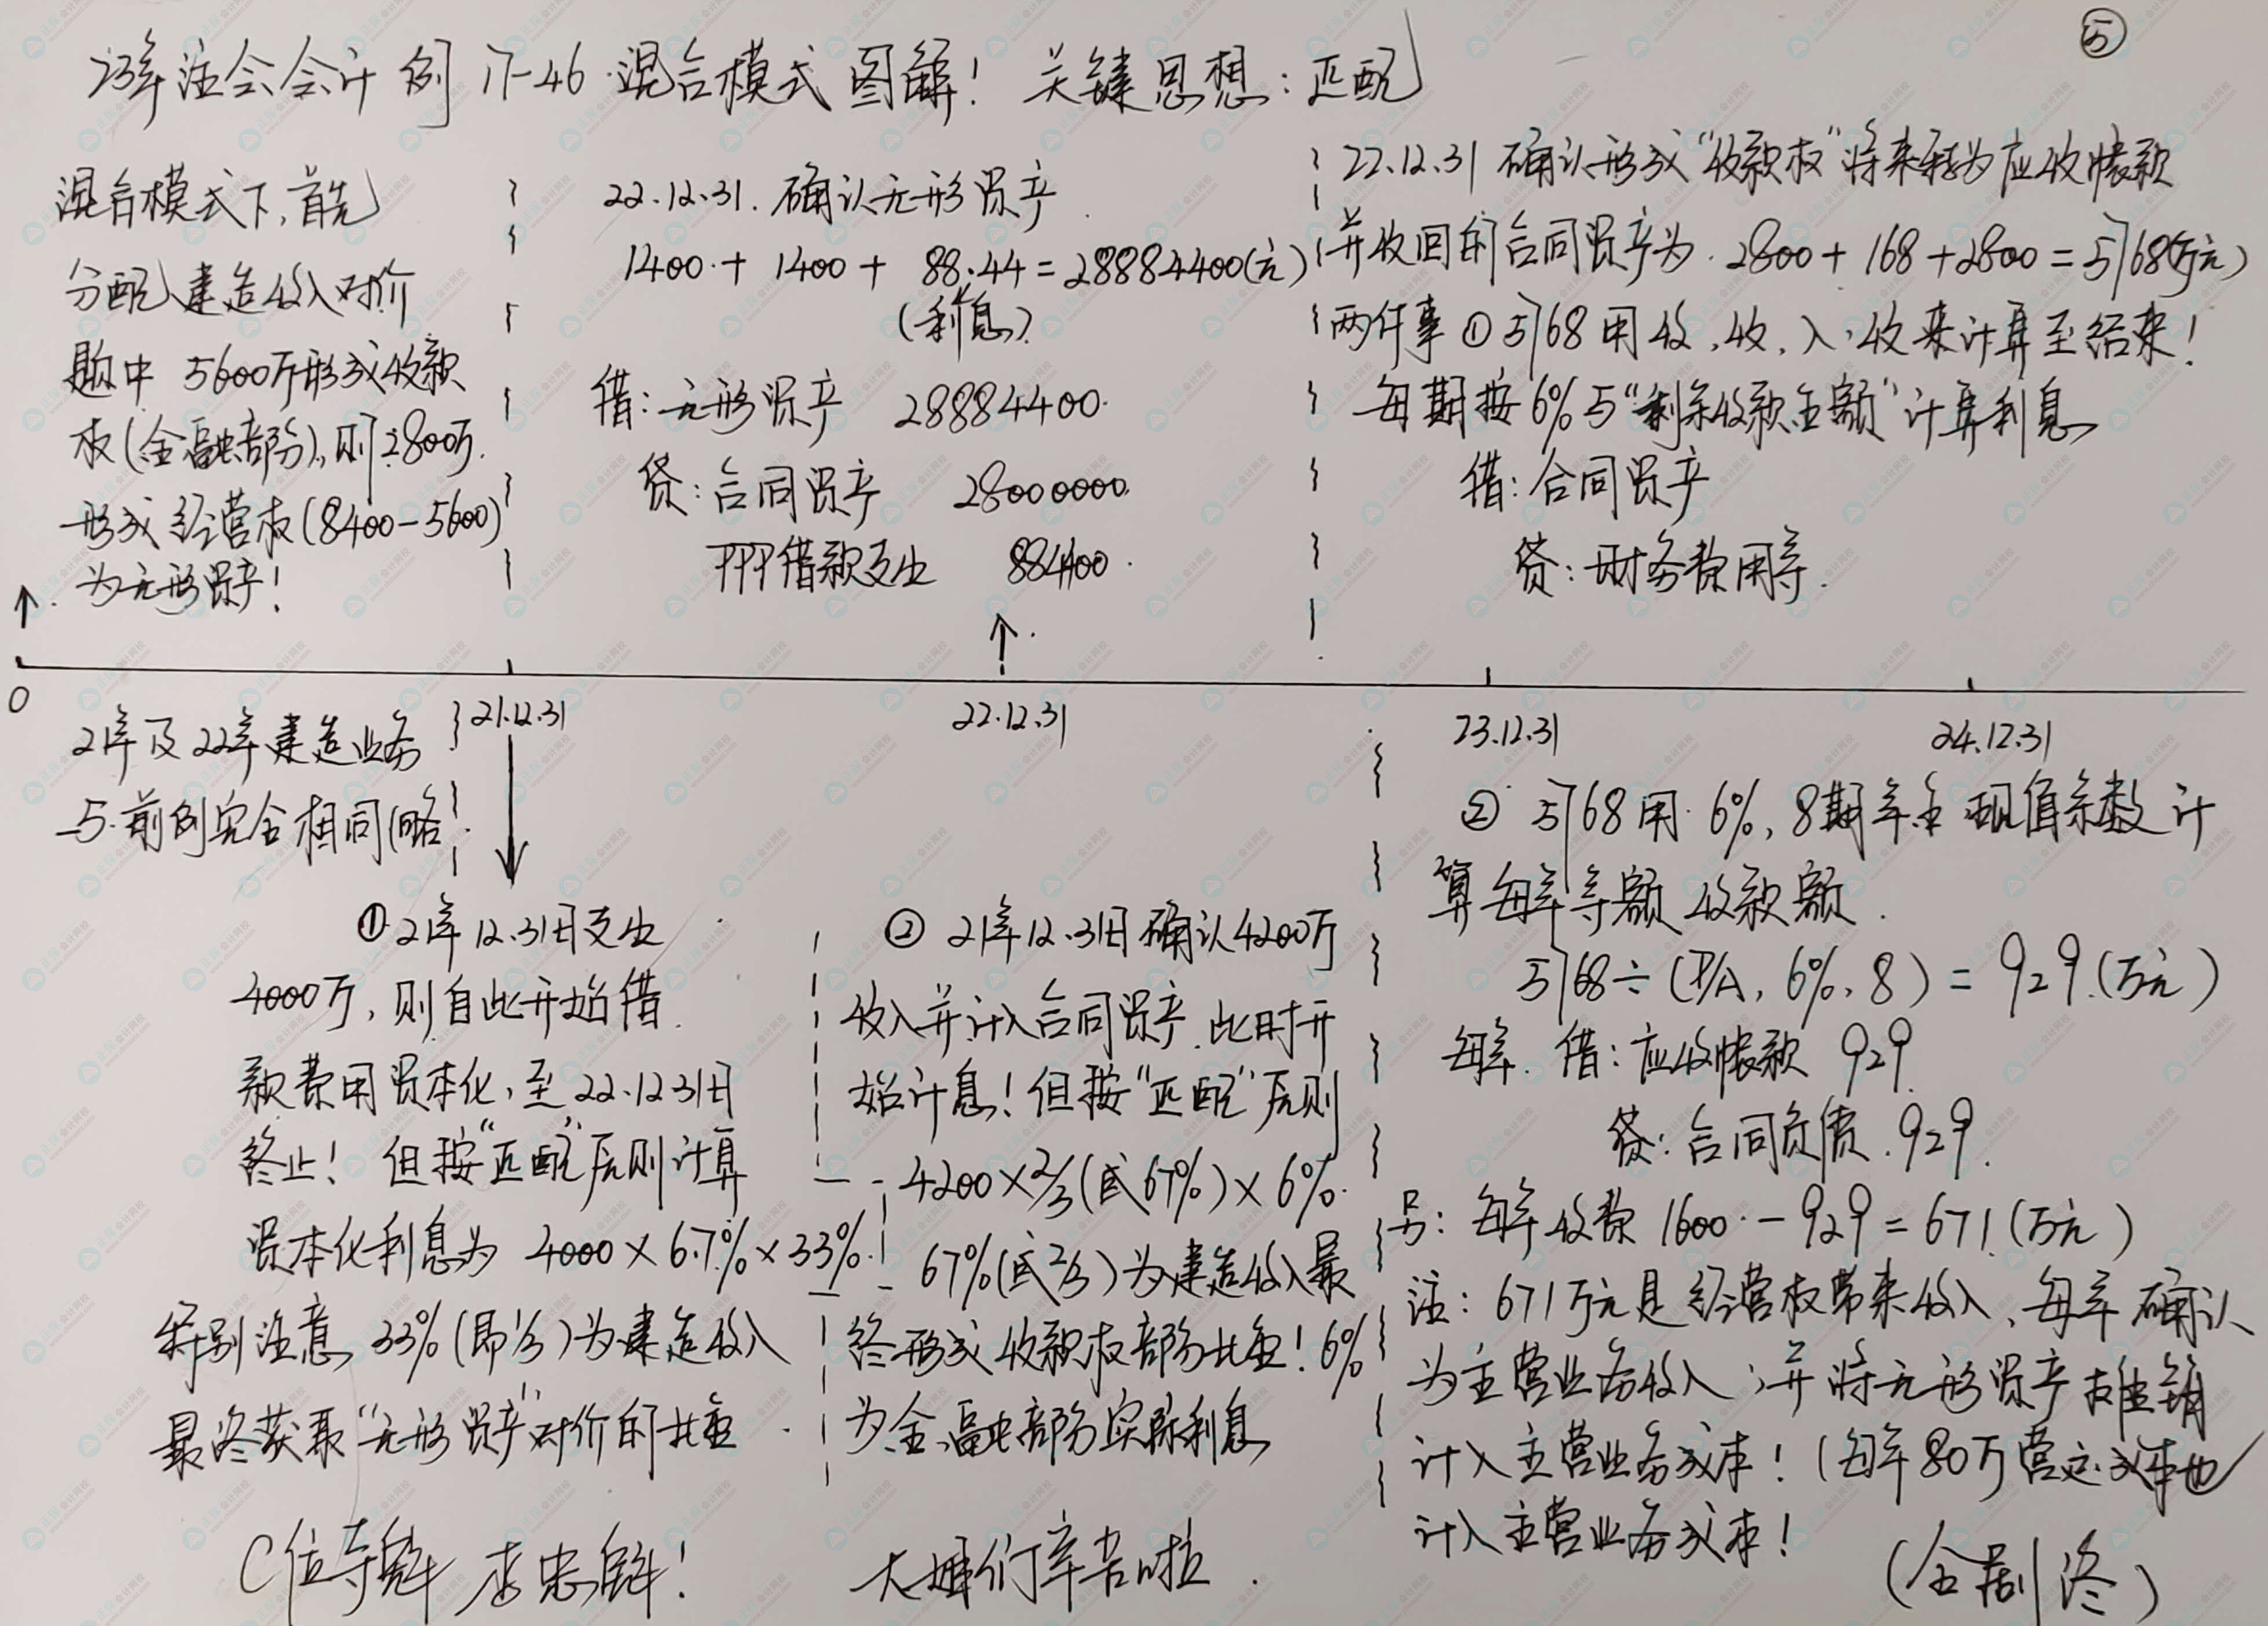 ⑤
23年注会会计 例17-46 混合模式图解！ 关键思想：匹配
混合模式下，首先
分配建造收入对价
题中 5600万形成收款
权(金融部分)，则2800万
形成经营权(8400-5600)
为无形资产！
22.12.31. 确认无形资产
1400 + 1400 + 88.44 = 28884400(元)
(利息)
借：无形资产 28884400
贷：合同资产 28000000
PPP借款支出 884400
22.12.31 确认形成“收款权”将来转为应收帐款
并收回的合同资产为 2800 + 168 + 2800 = 5768(万元)
两件事 ① 5768用收、收、入、收来计算至结束！
每期按6%与“剩余收款金额”计算利息
借：合同资产
贷：财务费用等.
0
21.12.31
22.12.31
23.12.31
24.12.31
21年及22年建造业务
与前例完全相同(略
① 21年12.31日支出
4000万，则自此开始借
款费用资本化，至22.12.31日
终止！ 但按“匹配”原则计算
资本化利息为 4000×6.7%×33%
特别注意 33%(即1/3)为建造收入
最终获取“无形资产”对价的比重
② 21年12.31日确认4200万
收入并计入合同资产，此时开
始计息！但按“匹配”原则
4200×2/3(或67%)×6%
67%(或2/3)为建造收入最
终形成收款权部分比重！6%
为金融部分实际利息
② 5768用 6%，8期年金现值系数计
算每年等额收款额.
5768÷(P/A, 6%, 8) = 929.(万元)
每年. 借：应收帐款 929.
贷：合同负债 929.
另：每年收费 1600 - 929 = 671.(万元)
注：671万元是经营权带来收入，每年确认
为主营业务收入；并将无形资产摊销
计入主营业务成本！(每年80万营运成本也
计入主营业务成本！
C位夺魁 李忠魁！
大姆们辛苦啦
(全剧终)